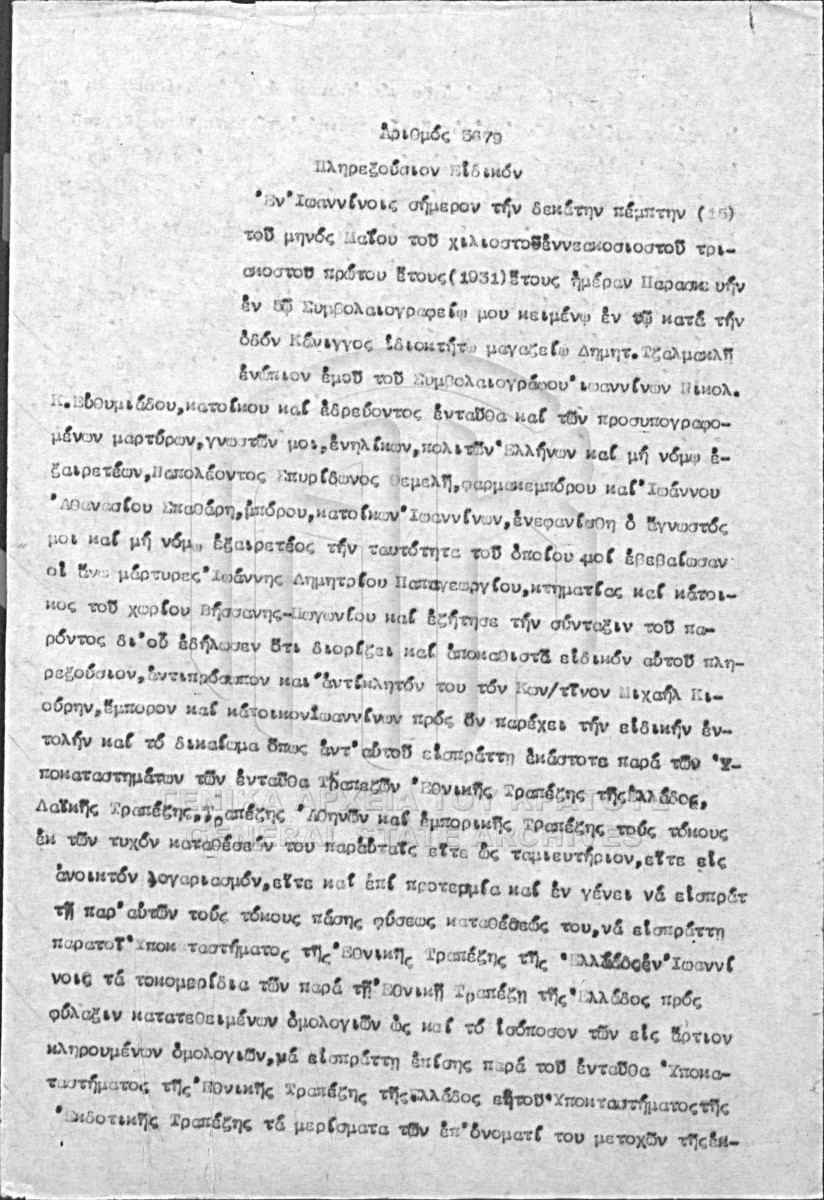 Ἀριθμός 5679
Πληρεξούσιον Εἰδικόν
Ἐν Ἰωαννίνοις σήμερον τήν δεκάτην πέμπτην (15)
τοῦ μηνός Μαΐου τοῦ χιλιοστοῦἐννεακοσιοστοῦ τρι-
ακοστοῦ πρώτου ἔτους(1931)ἔτους ἡμέραν Παρασκ υήν
ἐν τῷ Συμβολαιογραφείῳ μου κειμένῳ ἐν τῷ κατά τήν
ὁδόν Κάνιγγος ἰδιοκτήτῳ μαγαζείῳ Δημητ.Τζαλμακλῆ
ἐνώπιον ἐμοῦ τοῦ Συμβολαιογράφου Ἰωαννίνων Νικολ.
Κ.Εὐθυμιάδου,κατοίκου καί ἑδρεύοντος ἐνταῦθα καί τῶν προσυπογραφο-
μένων μαρτύρων,γνωστῶν μοι,ἐνηλίκων,πολιτῶν Ἑλλήνων καί μή νόμῳ ἐ-
ξαιρετέων,Ναπολέοντος Σπυρίδωνος Θεμελῆ,φαρμακεμπόρου καί Ἰωάννου
Ἀθανασίου Σπαθάρη,ἐμπόρου,κατοίκων Ἰωαννίνων,ἐνεφανίσθη ὁ ἄγνωστός
μοι καί μή νόμῳ ἐξαιρετέος τήν ταυτότητα τοῦ ὁποίου μοί ἐβεβαίωσαν
οἱ ἄνω μάρτυρες Ἰωάννης Δημητρίου Παπαγεωργίου,κτηματίας καί κάτοι-
κος τοῦ χωρίου Βήσσανης-Πωγωνίου καί ἐζήτησε τήν σύνταξιν τοῦ πα-
ρόντος δι'οὗ ἐδήλωσεν ὅτι διορίζει καί ἀποκαθιστᾶ εἰδικόν αὐτοῦ πλη-
ρεξούσιον,ἀντιπρόσωπον καί ἀντίκλητόν του τόν Κων/τῖνον Μιχαήλ Κι-
ούρην,ἔμπορον καί κάτοικονἸωαννίνων πρός ὅν παρέχει τήν εἰδικήν ἐν-
τολήν καί τό δικαίωμα ὅπως ἀντ'αὐτοῦ εἰσπράττῃ ἑκάστοτε παρά τῶν Ὑ-
ποκαταστημάτων τῶν ἐνταῦθα Τραπεζῶν Ἐθνικῆς Τραπέζης τῆςἙλλάδος,
Λαϊκῆς Τραπέζης,Τραπέζης Ἀθηνῶν καί ἐμπορικῆς Τραπέζης τούς τόκους
ἐκ τῶν τυχόν καταθέσεών του παρ'αὐταῖς εἴτε ὡς ταμιευτήριον,εἴτε εἰς
ἀνοικτόν λογαριασμόν,εἴτε καί ἐπί προτερμίᾳ καί ἐν γένει νά εἰσπράτ
τῇ παρ'αὐτῶν τούς τόκους πάσης φύσεως καταθέσεώς του,νά εἰσπράττῃ
παρατοῖ Ὑποκ ταστήματος τῆς Ἐθνικῆς Τραπέζης τῆς ἙλλάδοςἐνἸωαννί
νοις τά τοκομερίδια τῶν παρά τῇ Ἐθνικῇ Τραπέζῃ τῆς Ἑλλάδος πρός
φύλαξιν κατατεθειμένων ὁμολογιῶν ὡς καί τό ἰσόποσον τῶν εἰς ἄρτιον
κληρουμένων ὁμολογιῶν,νά εἰσπράττῃ ἐπίσης παρά τοῦ ἐνταῦθα Ὑποκα-
ταστήματος τῆς Ἐθνικῆς Τραπέζης τῆς Ἑλλάδος ἐῃτοῦ Ὑποκταστήματοςτῆς
Ἐκδοτικῆς Τραπέζης τά μερίσματα τῶν ἐπ'ὀνοματί του μετοχῶν τῆςἐκ-
ΓΕΝΙΚΑ ΑΡΧΕΙΑ ΤΟΥ ΚΡΑΤΟΥΣ
GENERAL STATE ARCHIVES